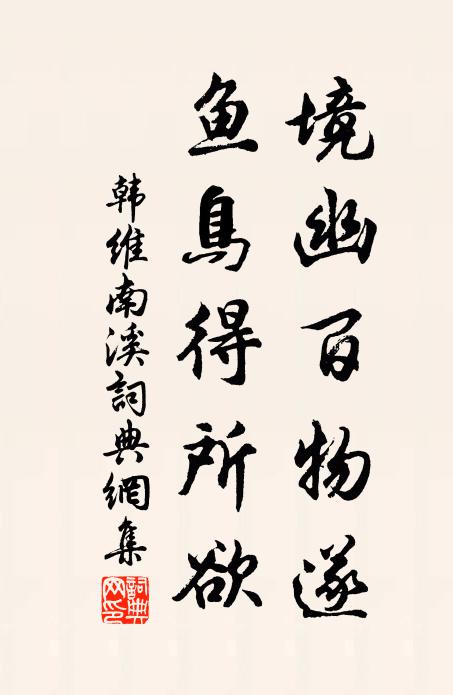 境幽百物遂
鱼鸟得所欲
韩维南溪詞典網集
詞典网印